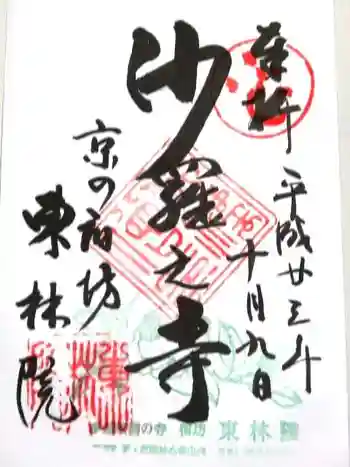 奉拝
平成廿三年
十月九日
沙羅之寺
京の宿坊
東林院
宿坊 東林院